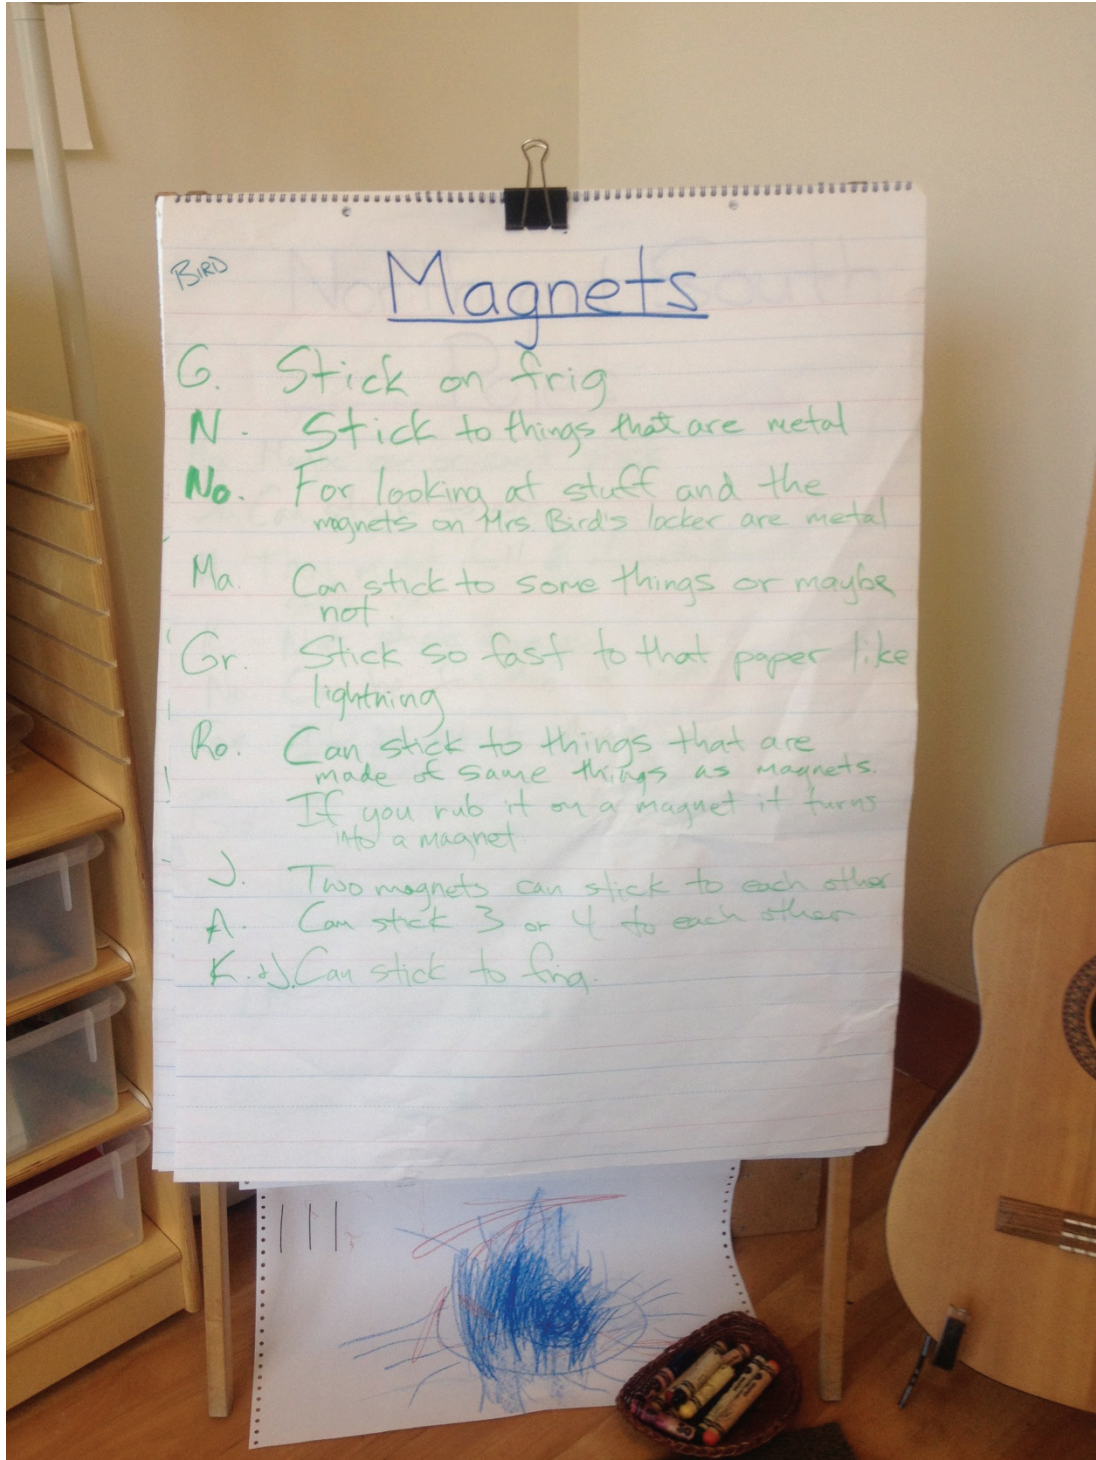 BIRD
Magnets
G. Stick on frig
N. Stick to things that are metal
No. For looking at stuff and the
magnets on Mrs. Bird's locker are metal
Ma. Can stick to some things or maybe
not.
Gr. Stick so fast to that paper like
lightning
Ro. Can stick to things that are
made of same things as magnets.
If you rub it on a magnet it turns
into a magnet.
J. Two magnets can stick to each other
A. Can stick 3 or 4 to each other
K. + J. Can stick to frig.